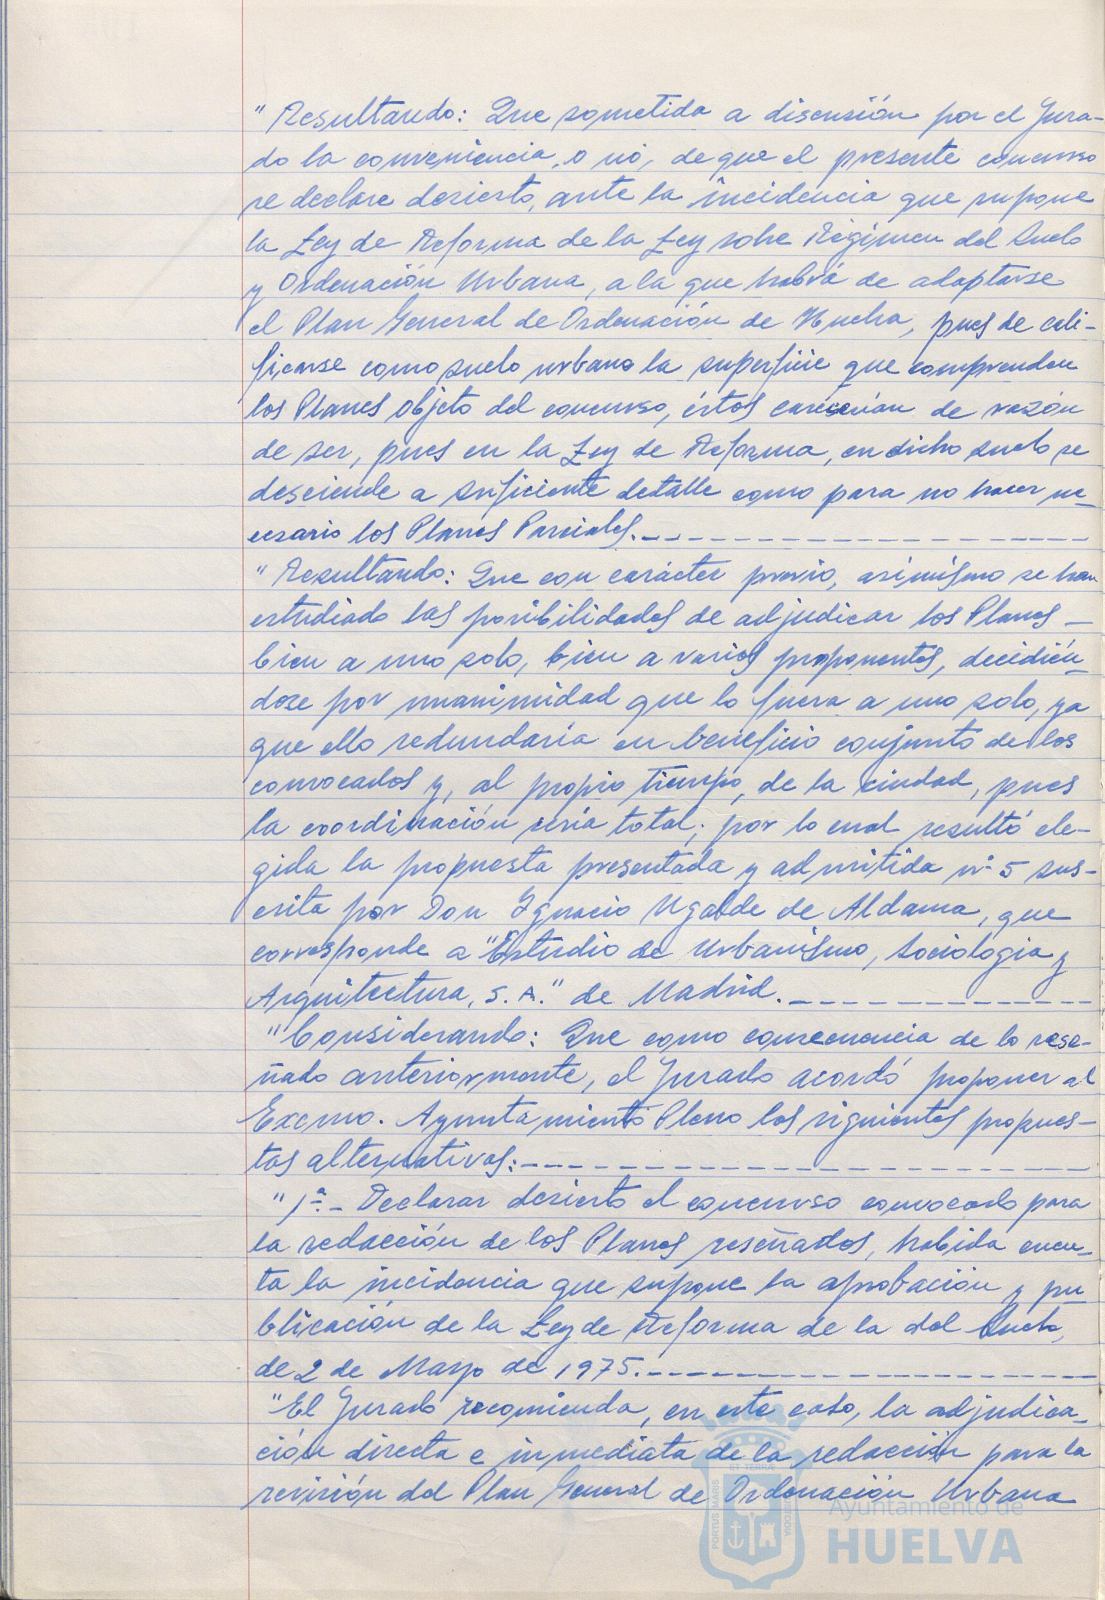 " Resultando: Que sometida a discusión por el Jura-
do la conveniencia, o no, de que el presente concurso
se declare desierto, ante la incidencia que supone
la Ley de Reforma de la Ley sobre Régimen del Suelo
y Ordenación Urbana, a la que habrá de adaptarse
el Plan General de Ordenación de Huelva, pues de cali-
ficarse como suelo urbano la superficie que comprenden
los Planes objeto del concurso, éstos carecerían de razón
de ser, pues en la Ley de Reforma, en dicho suelo se
desciende a suficiente detalle como para no hacer ne-
cesario los Planes Parciales.
" Resultando: Que con carácter previo, asimismo se han
estudiado las posibilidades de adjudicar los Planes -
bien a uno solo, bien a varios proponentes, decidién-
dose por unanimidad que lo fuera a uno solo, ya
que ello redundaría en beneficio conjunto de los
convocados y, al propio tiempo, de la ciudad, pues
la coordinación sería total; por lo cual resultó ele-
gida la propuesta presentada y admitida nº 5 sus-
crita por Don Ignacio Ugalde de Aldama, que
corresponde a "Estudio de Urbanismo, Sociologia y
Arquitectura, S. A." de Madrid.
"Considerando: Que como consecuencia de lo rese-
ñado anteriormente, el Jurado acordó proponer al
Excmo. Ayuntamiento Pleno las siguientes propues-
tas alternativas:
"1ª.- Declarar desierto el concurso convocado para
la redacción de los Planes reseñados, habida cuen-
ta la incidencia que supone la aprobación y pu
blicación de la Ley de Reforma de la del Suelo,
de 2 de Mayo de 1975.
"El Jurado recomienda, en este caso, la adjudica-
ción directa e inmediata de la redacción para la
revisión del Plan General de Ordenación Urbana
PORTUS MARIS ET TERRAE CUSTODIA
Ayuntamiento de
HUELVA